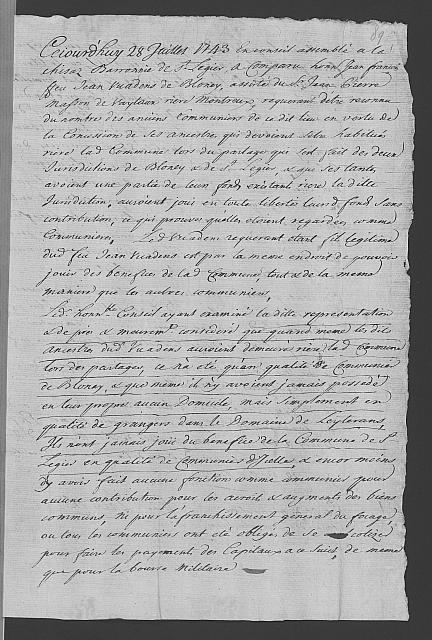 89
Cejourd'huy 28 Juillet 1743 En conseil assemblé a la
Baronnie de St Legier a Comparu honn. Jean francois
ffeu Jean de Bloney, assisté du Sr Jean Pierre
Masson de Veyteaux riere Montreux, requerant detre reconnu
du nombre des anciens Communiers de ce dit lieu en vertu de
la de ses ancestres qui devoient setre habitués
riere lad Commune lors du partage qui sest fait des deux
Jurisdictions de Bloney & de St Legier, & que ses tantes
avoient une partie de leur fond existants riere la ditte
Juridiction, auroient joui en toute liberté dud fond sans
contribution, ce qui prouve quelles etoient regardées comme
Communieres, Led requerant etant fil legitime
dud feu Jean est par la meme endroit de pouvoir
jouir des benefices de lad Commune, tout & de la meme
maniere que les autres communiers,
Led. honnble Conseil ayant examiné la ditte representation
& de près & meuremt considéré que quand meme les dits
Ancestres dud auroient demeuré riere lad Commune
lors des partages, ce n'a eté quen qualité de Communier
de Bloney, & que meme il ny avoient jamais possedé
en leur propre aucun Domicile, mais simplement en
qualité de grangers dans le Domaine de
Ils n'ont jamais joui du benefice de la Commune de St
Legier en qualité de Communiers & encor moins
dy avoir fait aucune fonction comme communier pour
aucune contribution pour les acrois & augments des biens
communs, ni pour l'afranchissement general du focage,
ou tous les communiers ont eté obligés de se cotizer
pour faire les payements des Capitaux a ce suiet, de meme
que pour la bource Militaire